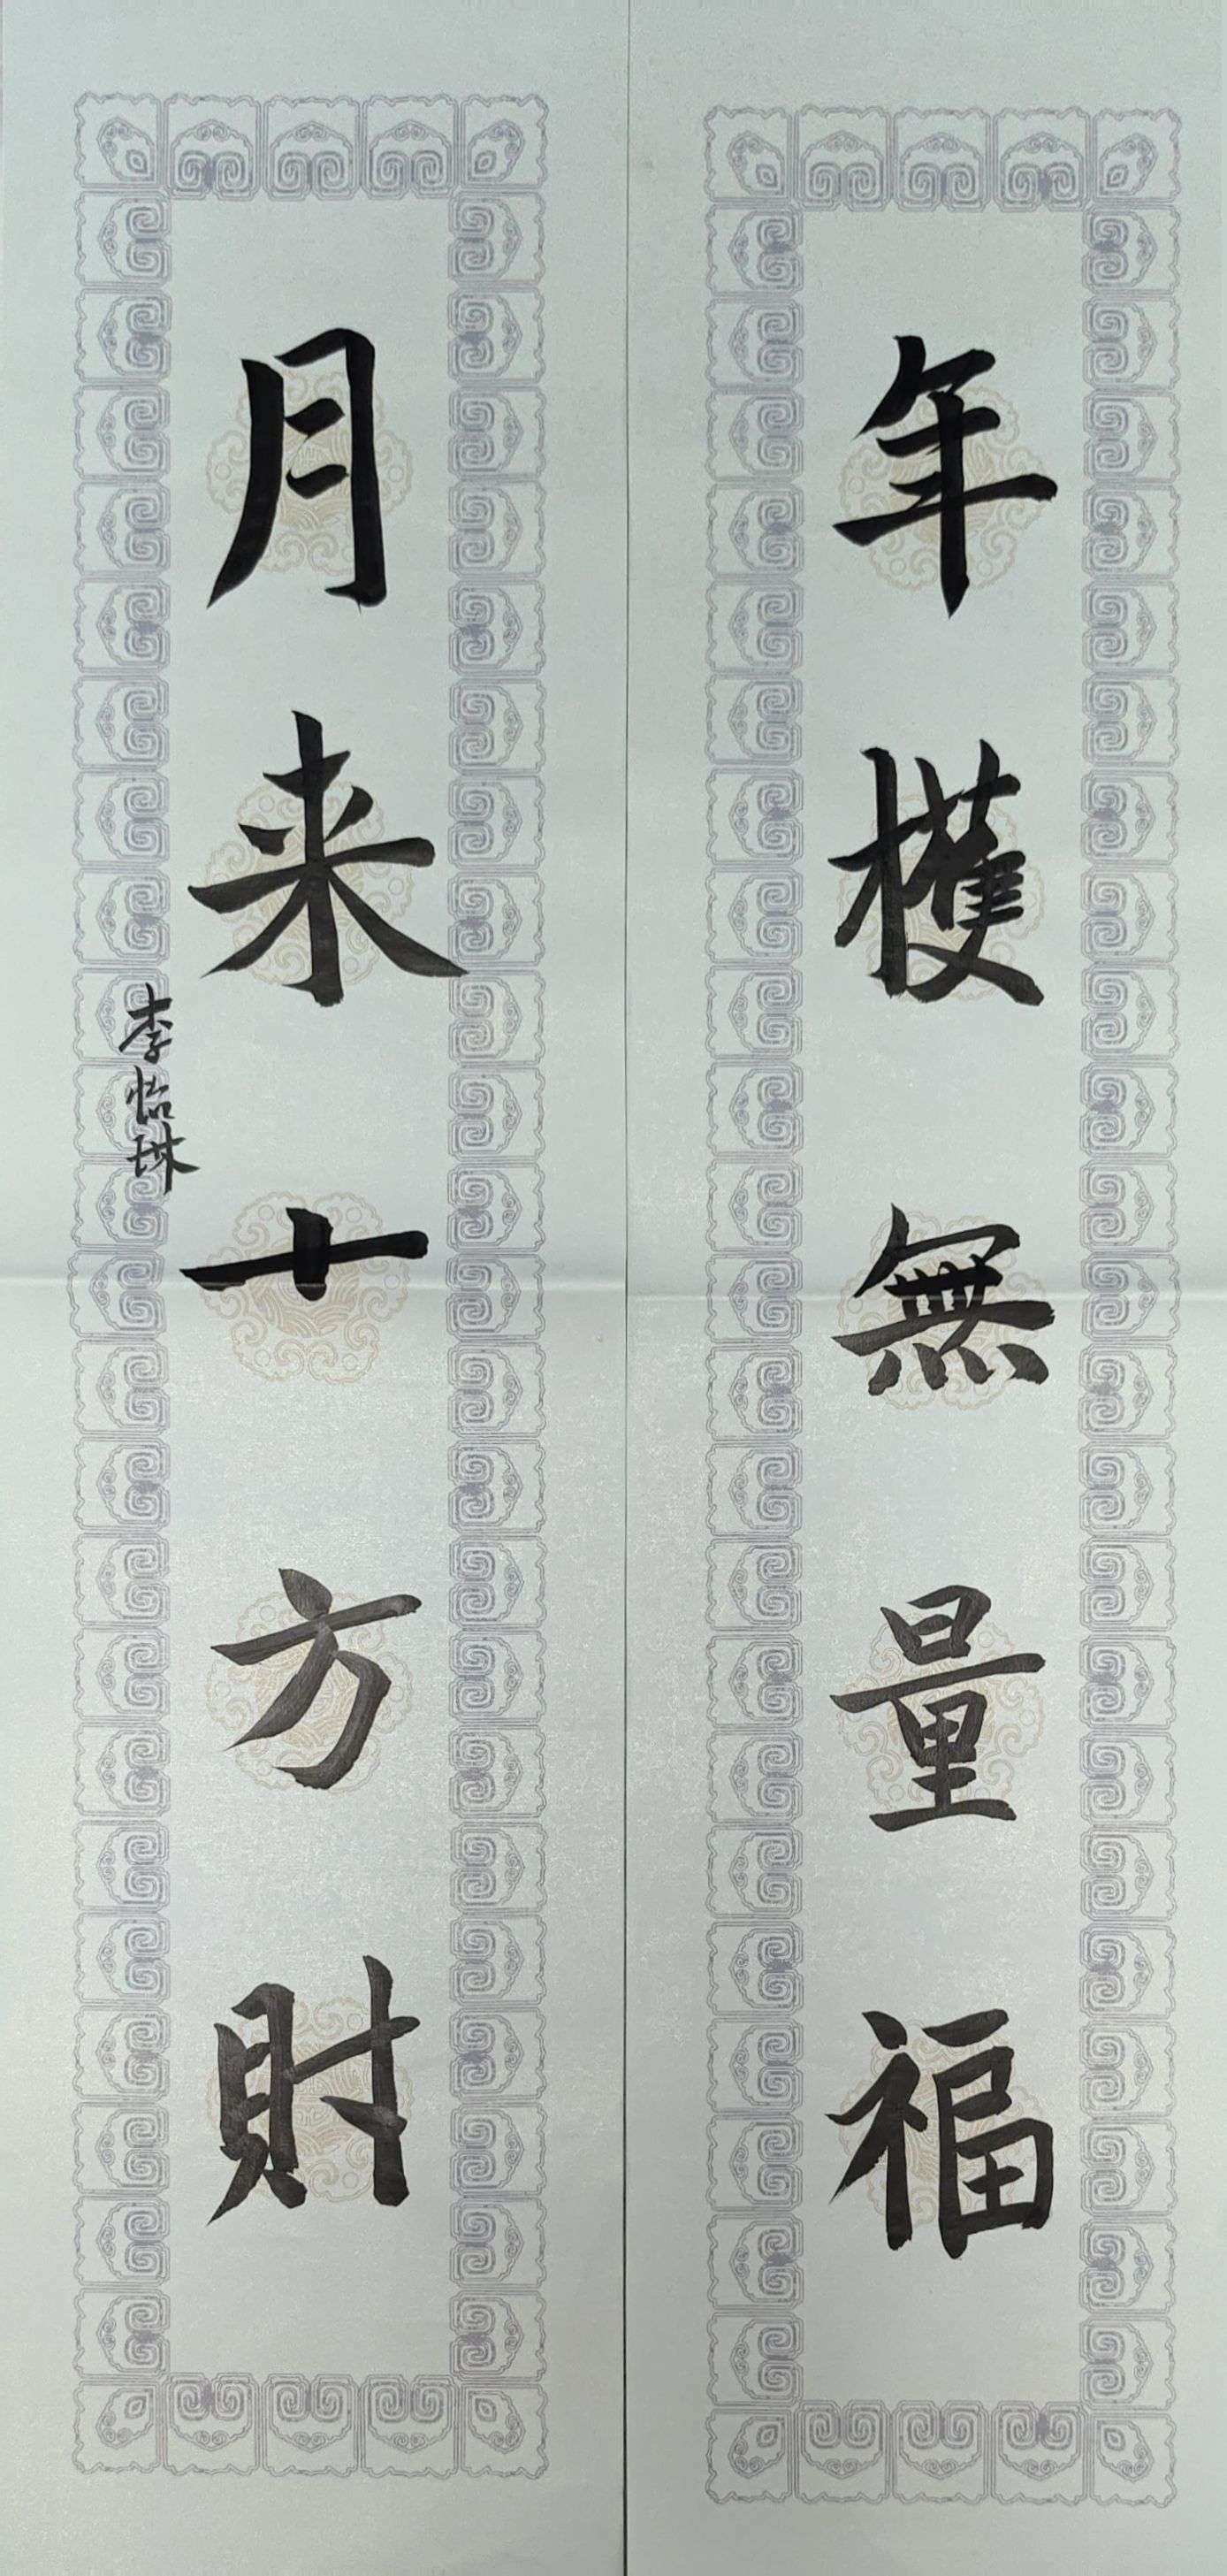 年檴無量福
月来十方財
李怡琳